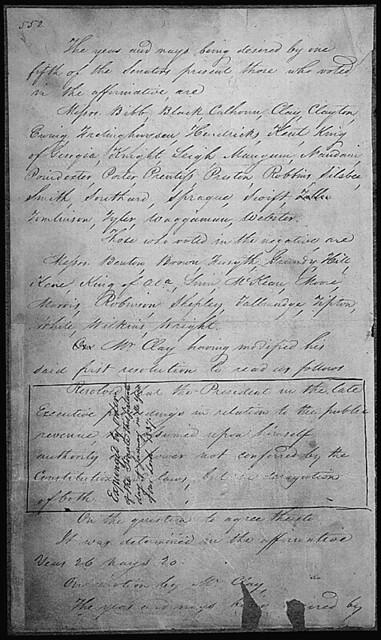 552
The yeas and nays being desired by one
fifth of the Senators present those who voted
in the affirmative, are
Messrs Bibb, Black Calhoun, Clay, Clayton,
Ewing Frelinghuysen Hendricks, Kent, King
of Georgia, Knight, Leigh, Mangum, Naudain
Poindexter, Porter, Prentiss Preston Robbins, Silsbee,
Smith, Southard, Sprague Swift
Tomlinson, Tyler, Waggaman, Webster.
Those who voted in the negative are
Messrs Benton Brown Forsyth, Grundy, Hill,
Kane, King of Ala, Linn, McKean, Moore,
Morris, Robinson Shepley, Tallmadge, Tipton,
White, Wilkins, Wright.
Mr Clay having modified his
said first resolution to read as follows
Resolved that the President in the late
Executive proceedings in relation to the public
revenue, assumed upon himself
authority power not conferred by the
Constitution laws, but in derogation
of both
Expunged by order
of the Senate
1837.
On the question to agree thereto
It was determined in the affirmative
Yeas 26 nays 20.
On motion by Mr Clay,
The yeas and nays being desired by